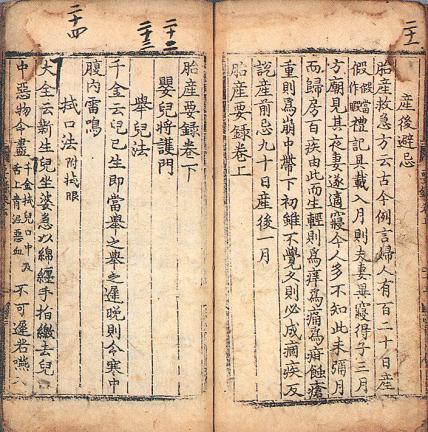 二十一
産後避忌
胎産救急方云古今例言婦人有百二十日産
假假當作暇禮記具載入月則夫妻異寢得子三月
方廟見其夜妻遂適寢今人多不知此未彌月
而歸房百疾由此而生輕則爲痒爲痛爲疳蝕瘡
重則爲崩中帶下初雖不覺久則必成痼疾又
説産前忌九十日産後一月
胎産要錄卷上
二十二
二十三
二十四
胎産要錄卷下
嬰兒將護門
擧兒法
千金云兒已生即當擧之擧之遲晩則令寒中
腹內雷鳴
拭口法附拭眼
大全云新生兒坐婆急以綿纏手指繳去兒
中惡物令盡千金拭兒口中及舌上青泥惡血不可遲若嚥入